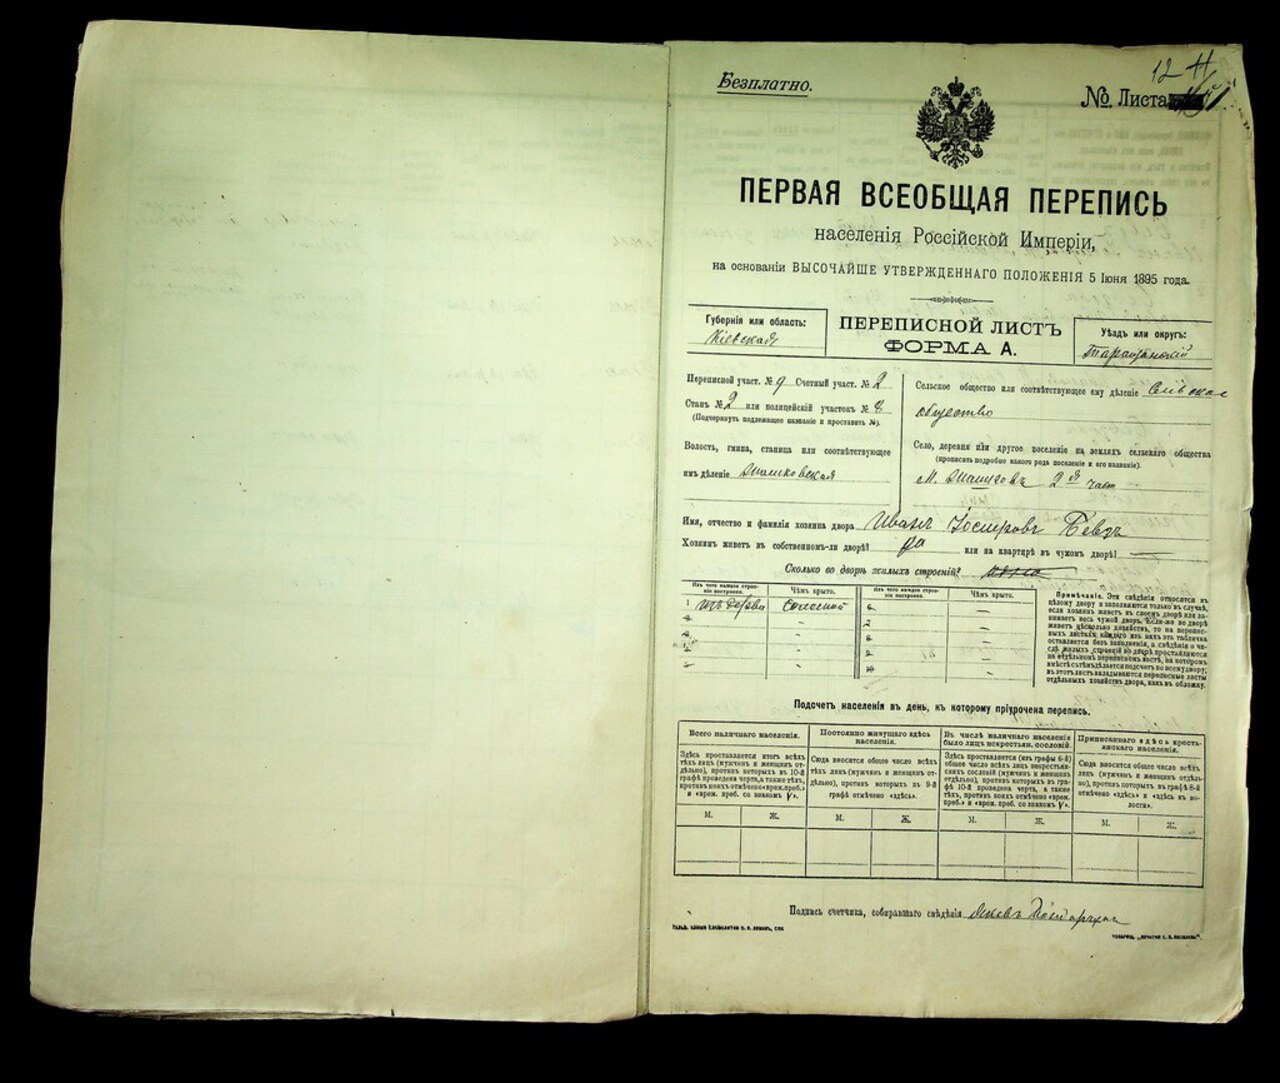 Безплатно.
12
№ Листа
ПЕРВАЯ ВСЕОБЩАЯ ПЕРЕПИСЬ
населенія Россійской Имперіи,
на основаніи ВЫСОЧАЙШЕ УТВЕРЖДЕННАГО ПОЛОЖЕНІЯ 5 Іюня 1895 года.
Губернія или область:
Кіевская
ПЕРЕПИСНОЙ ЛИСТЪ
ФОРМА А.
Уѣздъ или округъ:
Таращанскій
Переписной участ. № 9 Счетный участ. № 2
Станъ № 2 или полицейскій участокъ № 8
(Подчеркнуть подлежащее названіе и проставить №).
Волость, гмина, станица или соотвѣтствующее
имъ дѣленіе
Сельское общество или соотвѣтствующее ему дѣленіе
общество
Село, деревня или другое поселеніе на земляхъ сельскаго общества
(прописать подробно какого рода поселеніе и его названіе).
М. 2я част
Имя, отчество и фамилія хозяина двора Иванъ Бевзъ
Хозяинъ живетъ въ собственномъ-ли дворѣ? да или на квартирѣ въ чужомъ дворѣ? —
Сколько во дворѣ жилыхъ строеній?
Изъ чего каждое строеніе построено.
Чѣмъ крыто.
Изъ чего каждое строеніе построено.
Чѣмъ крыто.
1 изъ дерева соломой
Примѣчаніе. Эти свѣдѣнія относятся къ
цѣлому двору и заполняются только въ случаѣ,
если хозяинъ живетъ въ своемъ дворѣ или за-
нимаетъ весь чужой дворъ. Если-же во дворѣ
живетъ нѣсколько хозяйствъ, то на перепис-
ныхъ листахъ каждаго изъ нихъ эта табличка
оставляется безъ заполненія, а свѣдѣнія о чи-
слѣ жилыхъ строеній во дворѣ проставляются
на отдѣльномъ переписномъ листѣ, на которомъ
вмѣстѣ съ тѣмъ дѣлается подсчетъ по всему двору;
въ этотъ листъ вкладываются переписные листы
отдѣльныхъ хозяйствъ двора, какъ въ обложку.
Подсчетъ населенія въ день, къ которому пріурочена перепись.
Всего наличнаго населенія.
Здѣсь проставляется итогъ всѣхъ
тѣхъ лицъ (мужчинъ и женщинъ от-
дѣльно), противъ которыхъ въ 10-й
графѣ проведена черта, а также тѣхъ,
противъ коихъ отмѣчено «врем. преб.»
и «врем. преб. со знакомъ V».
Постоянно живущаго здѣсь
населенія.
Сюда вносится общее число всѣхъ
тѣхъ лицъ (мужчинъ и женщинъ от-
дѣльно), противъ которыхъ въ 9-й
графѣ отмѣчено «здѣсь».
Въ числѣ наличнаго населенія
было лицъ некрестьян. сословій.
Здѣсь проставляется (изъ графы 6-й)
общее число всѣхъ лицъ некрестьян-
скихъ сословій (мужчинъ и женщинъ
отдѣльно), противъ которыхъ въ гра-
фѣ 10-й проведена черта, а также
тѣхъ, противъ коихъ отмѣчено «врем.
преб.» и «врем. преб. со знакомъ V».
Приписаннаго здѣсь кресть-
янскаго населенія.
Сюда вносится общее число всѣхъ
лицъ (мужчинъ и женщинъ отдѣль-
но), противъ которыхъ въ графѣ 8-й
отмѣчено «здѣсь» и «здѣсь въ во-
лости».
М. Ж. М. Ж. М. Ж. М. Ж.
Подпись счетчика, собиравшаго свѣдѣнія